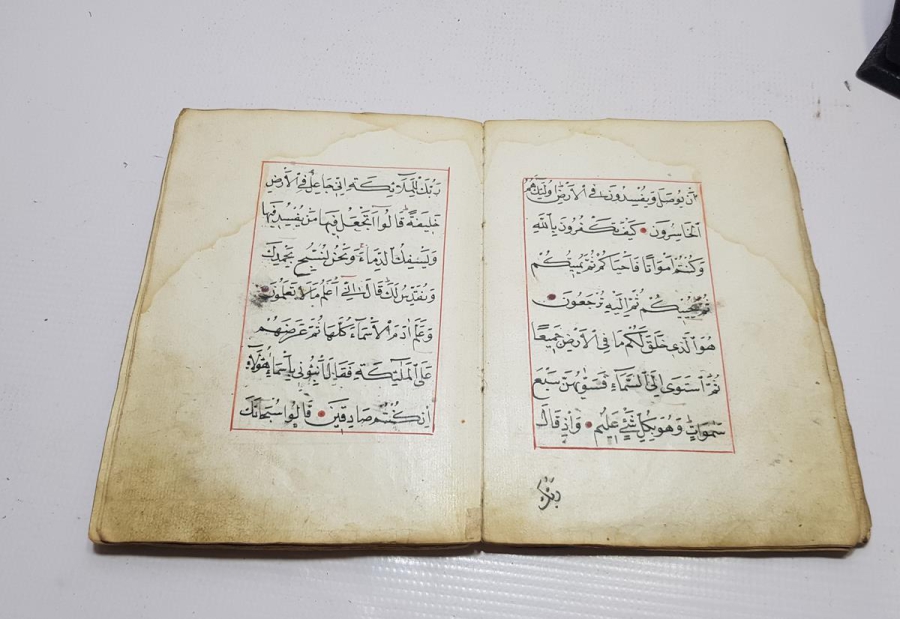 أن يوصل ويفسدون في الأرض أولئك هم
الخاسرون كيف تكفرون بالله
وكنتم أمواتا فأحياكم ثم يميتكم
ثم يحييكم ثم إليه ترجعون
هو الذي خلق لكم ما في الأرض جميعا
ثم استوى إلى السماء فسويهن سبع
سموات وهو بكل شئ عليم وإذ قال
ربك
ربك للملائكة إني جاعل في الأرض
خليفة قالوا أتجعل فيها من يفسد فيها
ويسفك الدماء ونحن نسبح بحمدك
ونقدس لك قال إني أعلم ما لا تعلمون
وعلم آدم الأسماء كلها ثم عرضهم
على الملئكة فقال أنبئوني بأسماء هؤلاء
إن كنتم صادقين قالوا سبحانك